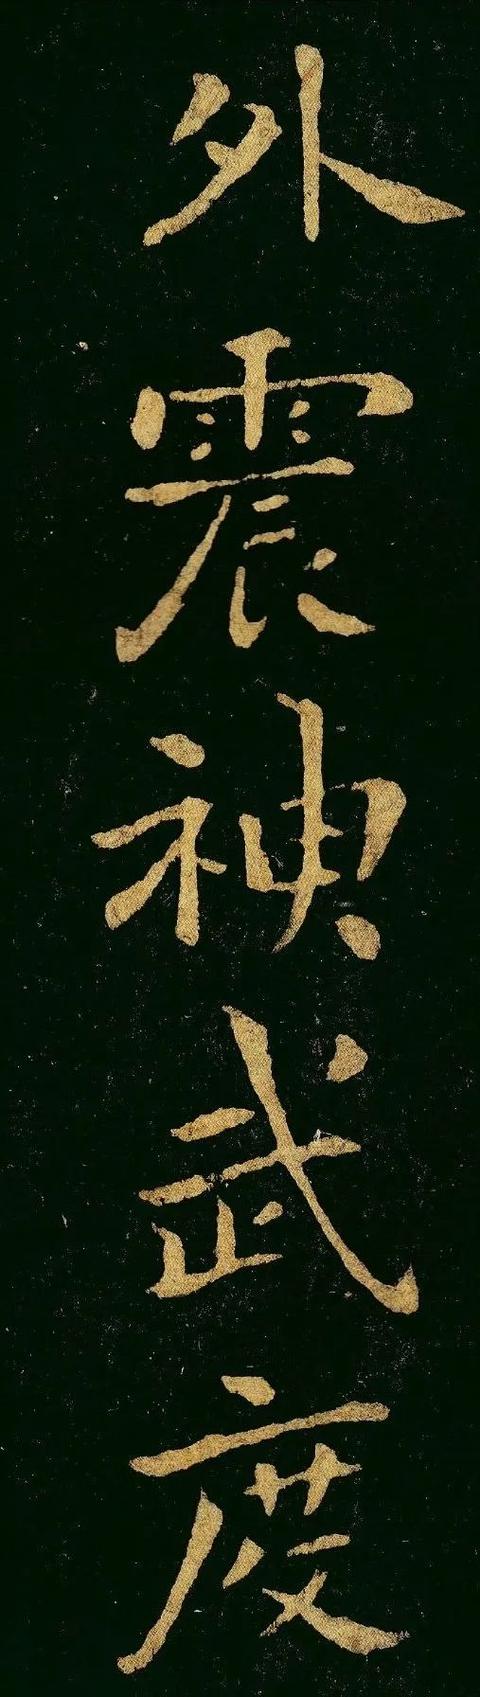 外震神武度